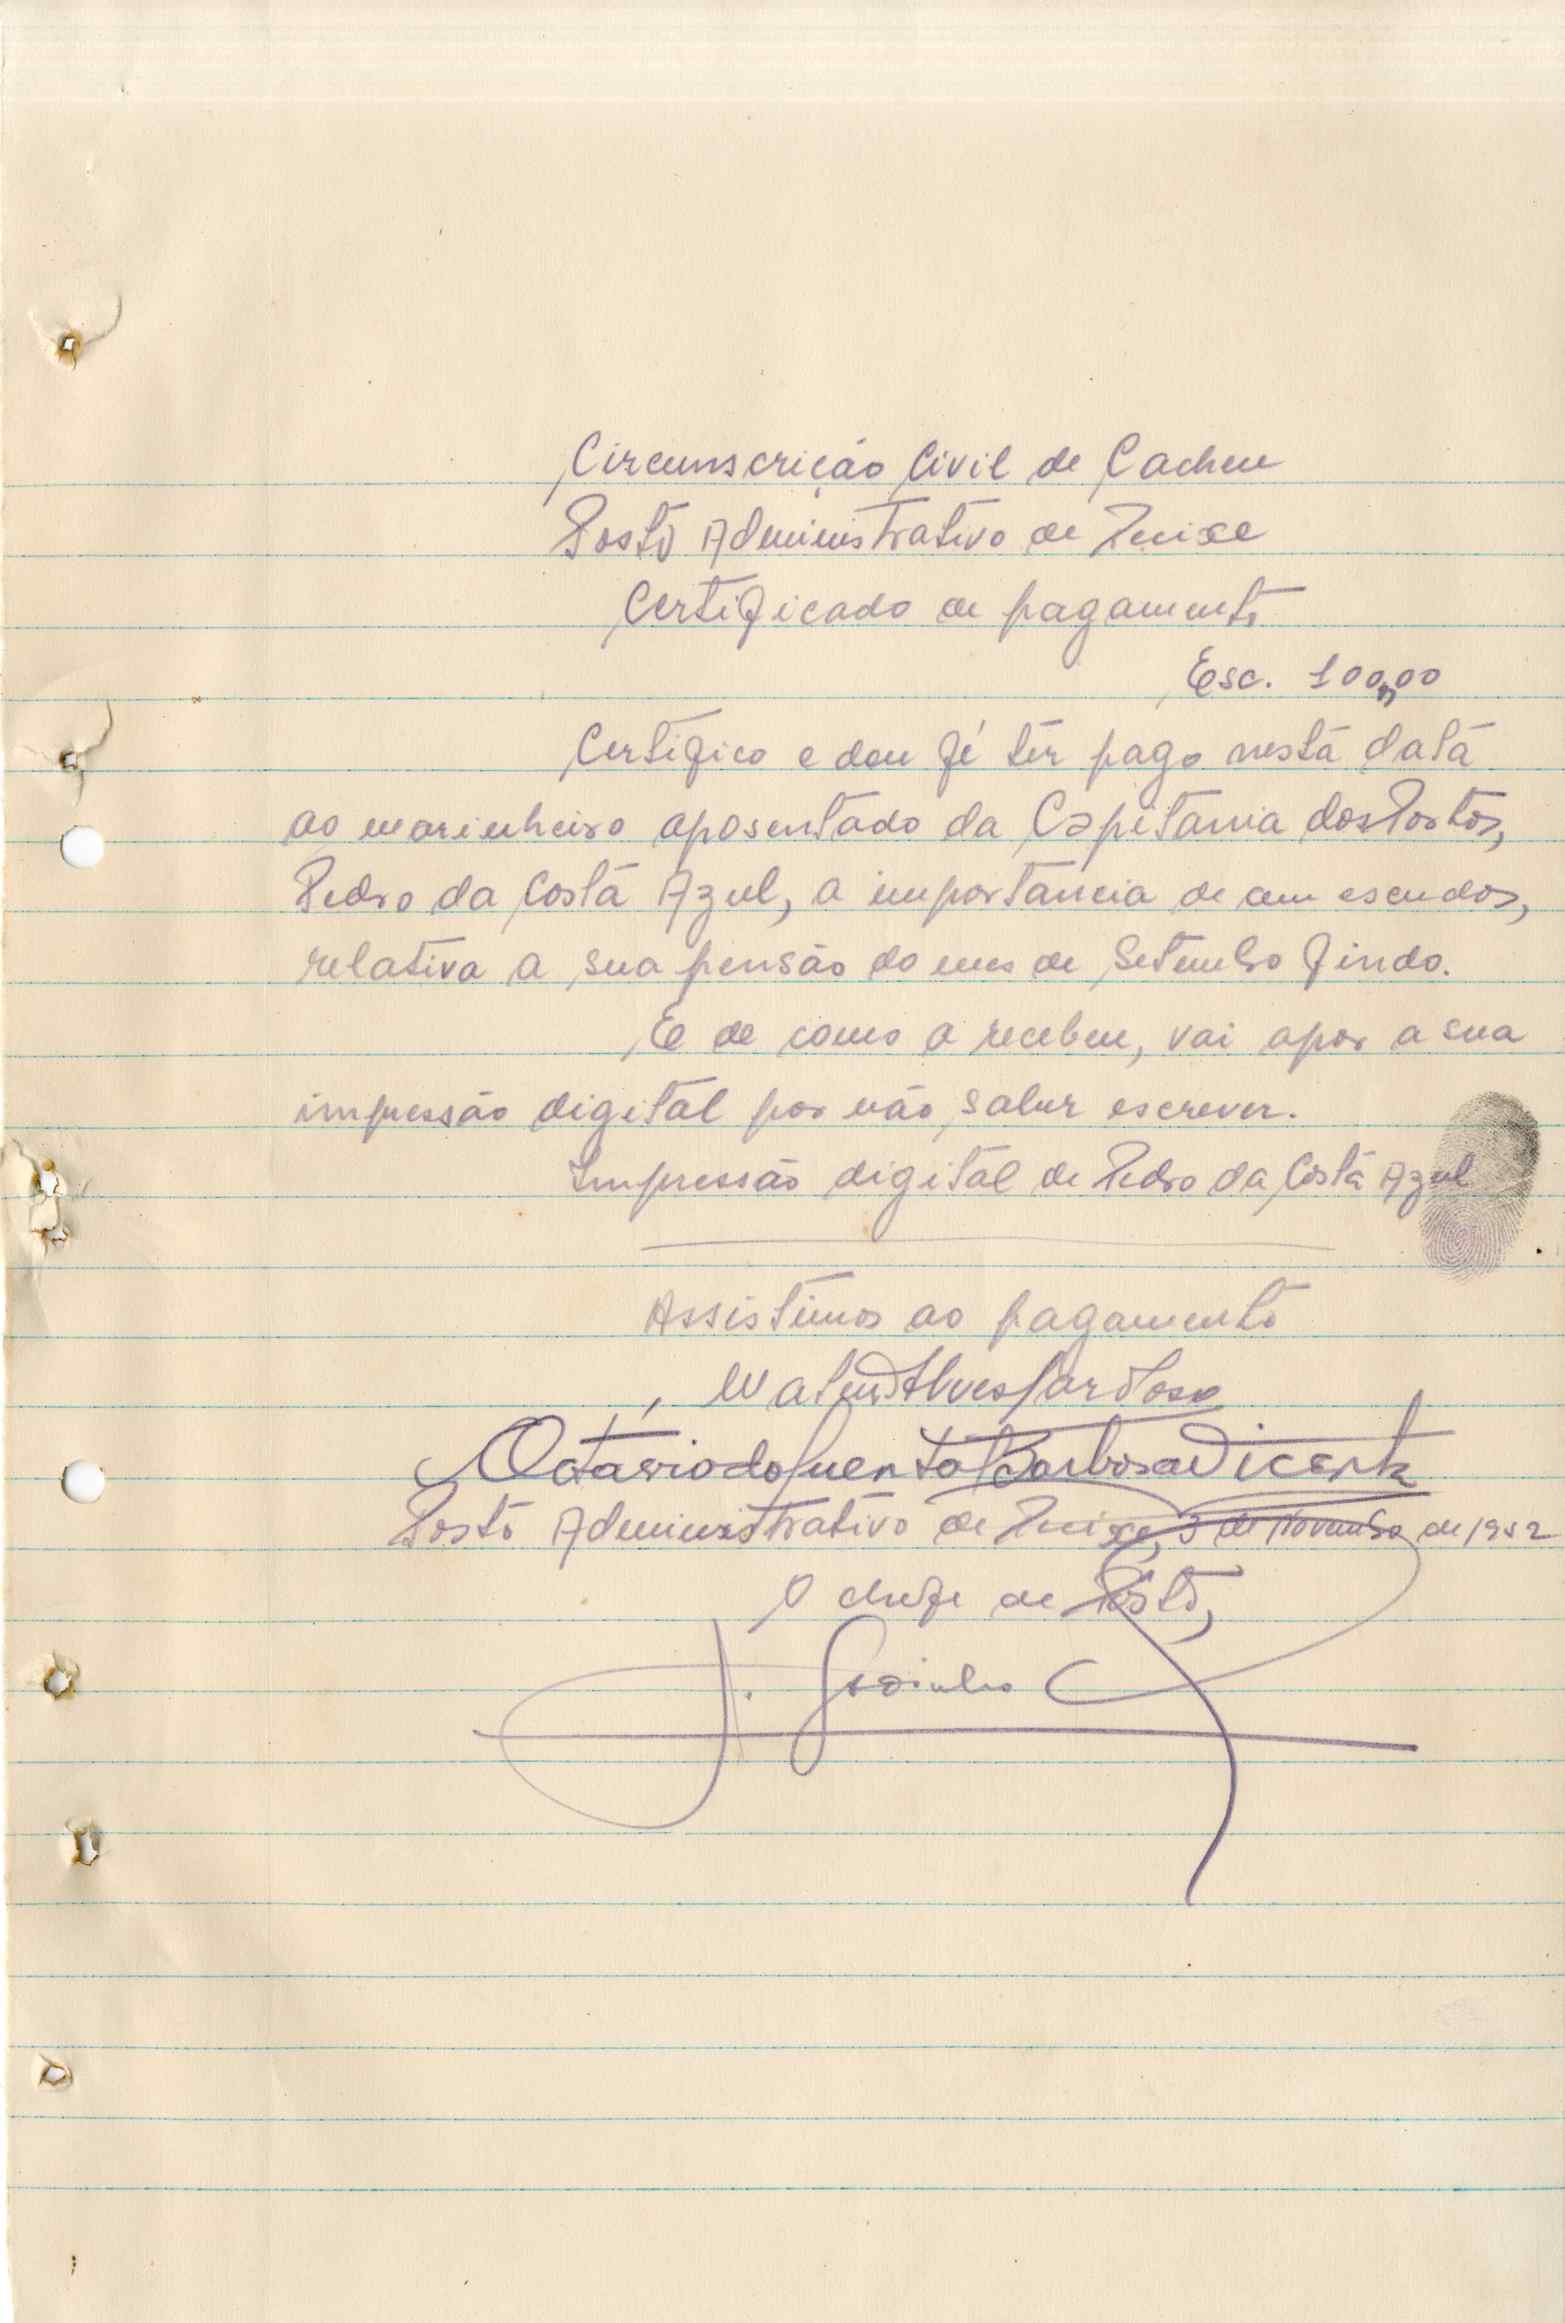 Circunscrição Civil de Cacheu
Posto Administrativo de
Certificado de pagamento
Esc. 100,00
Certifico e dou fé ter pago nesta data
ao marinheiro aposentado da Capitania dos Portos,
Pedro da Costa Azul, a importancia de cem escudos,
relativa a sua pensão do mes de Setembro findo.
E de como a recebeu, vai apor a sua
impressão digital por não saber escrever.
Impressão digital de Pedro da Costa Azul
Assistimos ao pagamento
Alves Cardoso
Octávio do Barbosa Vicente
Posto Administrativo de 3 de Novembro de 1952
O chefe de Pôsto,
J. Godinho